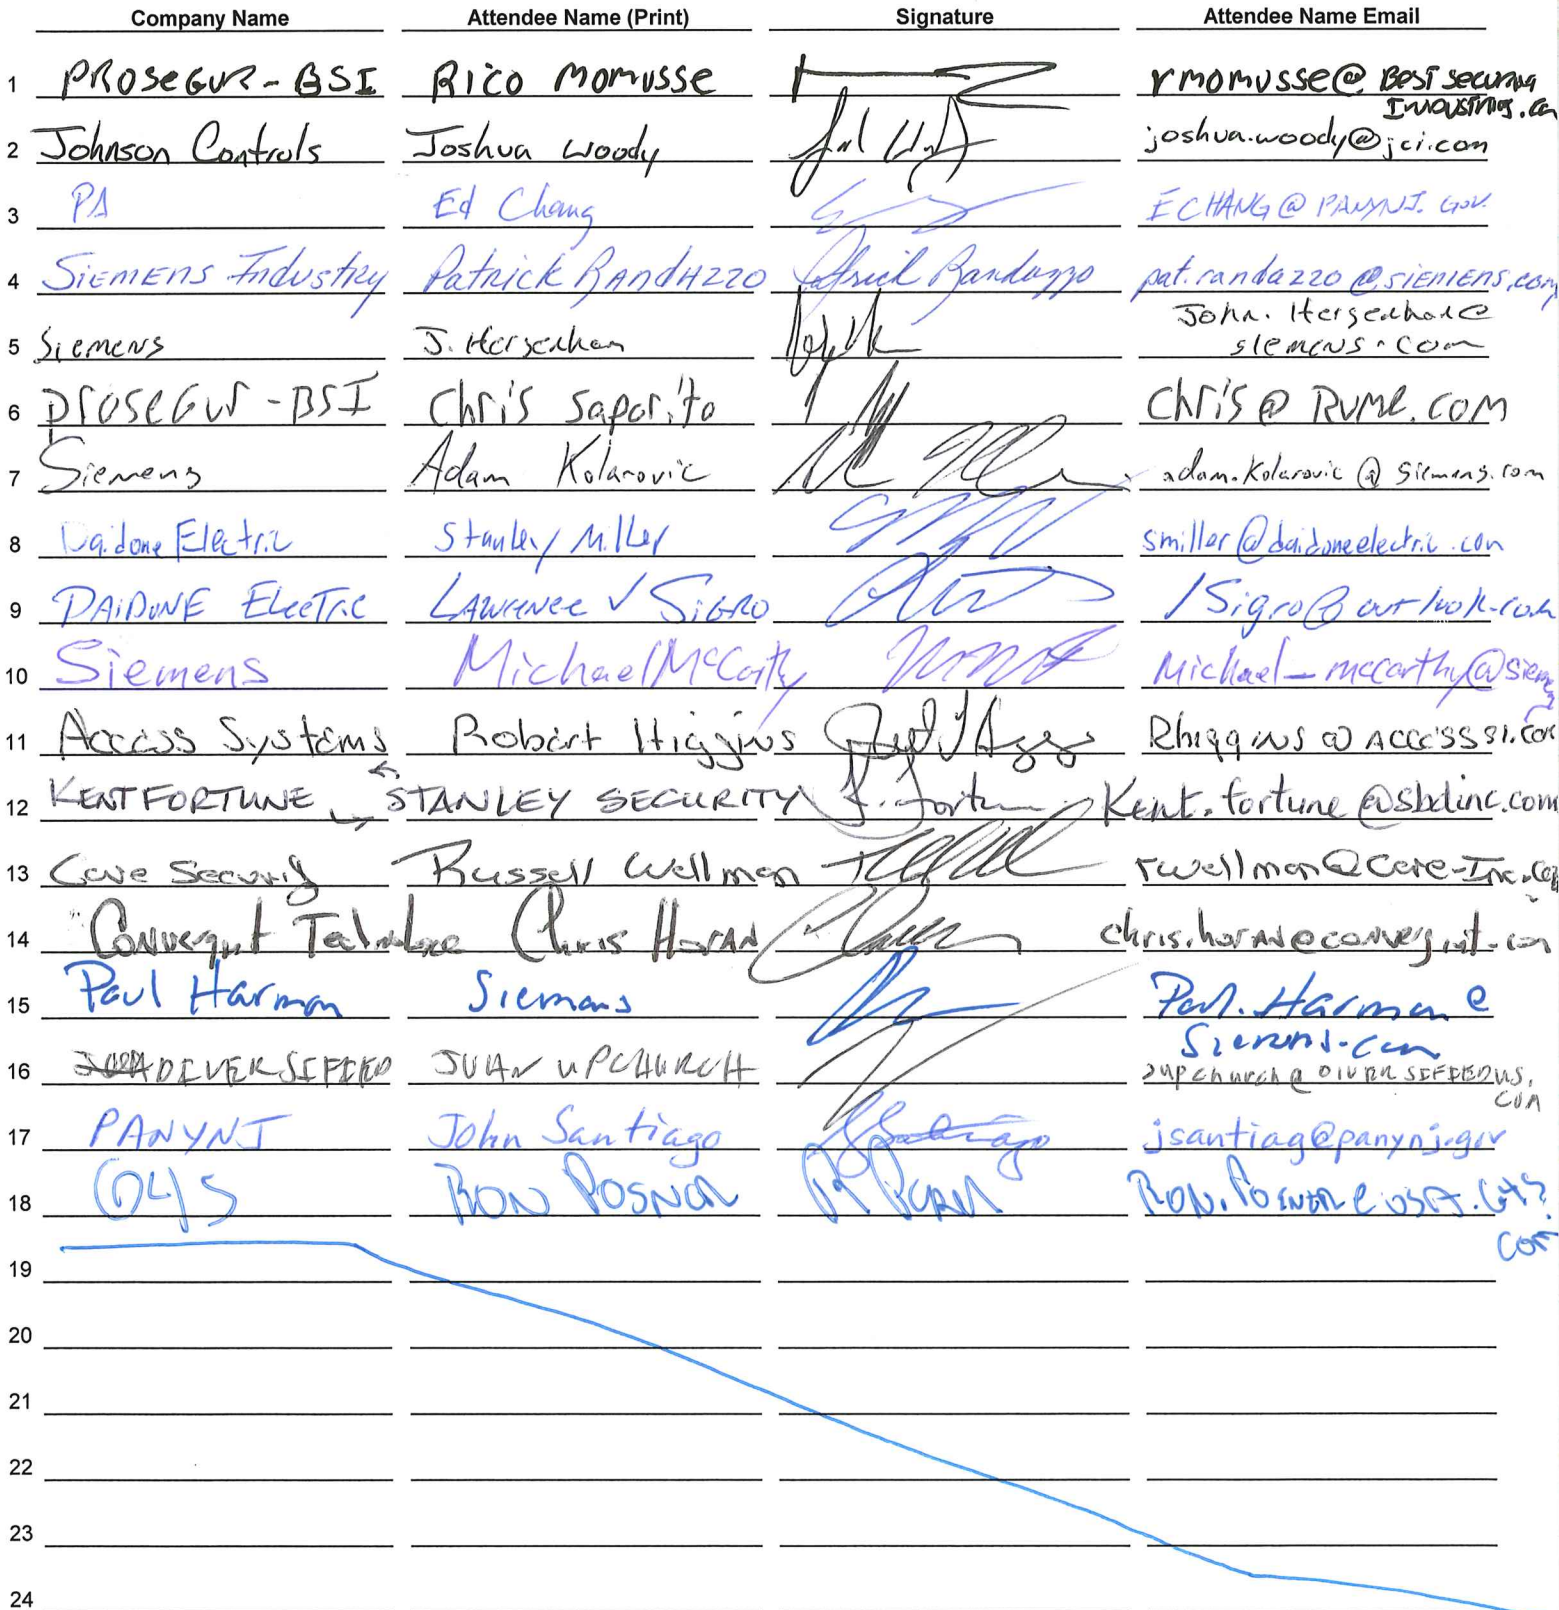 Company Name Attendee Name (Print) Signature Attendee Name Email
1 PROSEGUR-BSI RICO MOMUSSE rmomusse@ BEST SECURITY
INDUSTRIES.com
2 Johnson Controls Joshua Woody joshua.woody@jci.com
3 PA Ed Chang ECHANG@PANYNJ.GOV.
4 SIEMENS Industry Patrick RANDAZZO Patrick Randazzo pat.randazzo@SIEMENS.com
John.Hergenhan@
5 Siemens J. Hergenhan siemens.com
6 ProseGur-BSI Chris Saporito Chris@RVML.COM
7 Siemens Adam Kolarovic adam.Kolarovic@Siemens.com
8 Daidone Electric Stanley Miller smiller@daidoneelectric.com
9 DAIDONE ELECTRIC LAWRENCE V SIGRO lSigro@outlook.com
10 Siemens Michael McCarthy Michael_mccarthy@siemens
11 Access Systems Robert Higgins Rhiggins@ACCESSSI.com
12 KENT FORTUNE STANLEY SECURITY K. Fortune Kent.fortune@sbdinc.com
13 Care Security Russell Wellman rwellman@Care-Inc.com
14 Convergint Chris HORAN chris.horan@convergint.com
15 Paul Harman Siemans Paul.Harman@
Siemens.com
16 DIVERSIFIED JUAN UPCHURCH jupchurch@DIVERSIFIEDUS.
COM
17 PANYNJ John Santiago J Santiago jsantiag@panynj.gov
18 G4S RON POSNOR RON. @USA.G4S.
COM
19
20
21
22
23
24